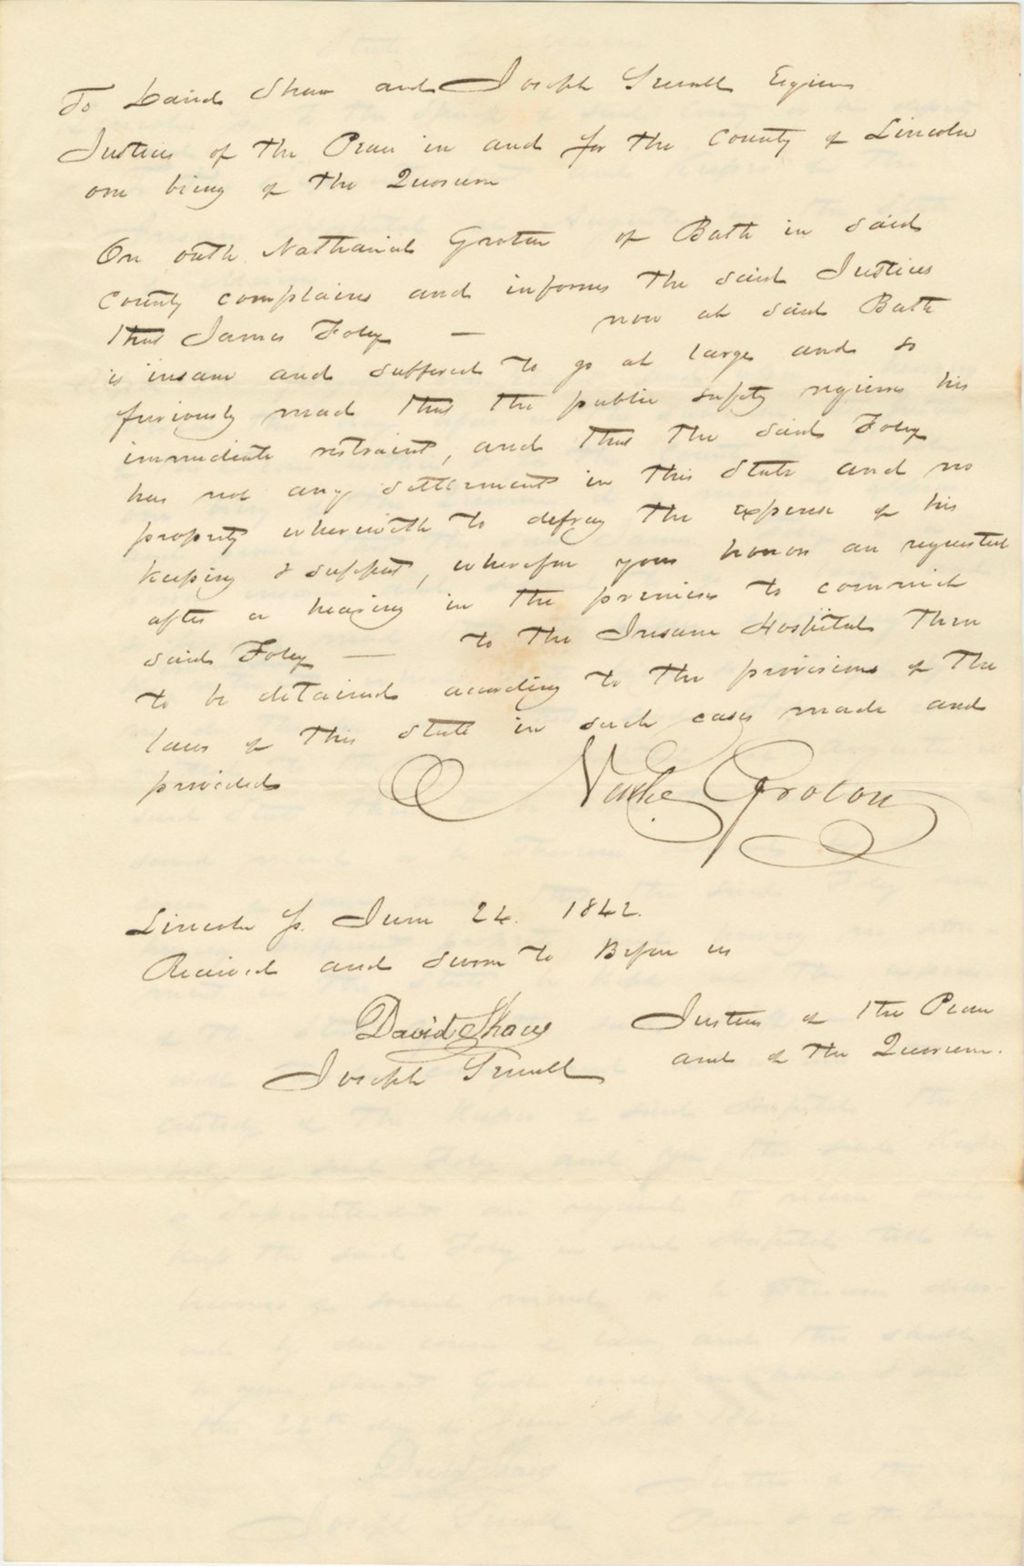 To David Shaw and Joseph Sewall Esquires
Justices of the Peace in and for the County of Lincoln
one being of the Quorum
On oath Nathaniel Groton of Bath in said
County complains and informs the said Justices
that James Foley — now at said Bath
is insane and suffered to go at large and so
furiously mad that the public safety requires his
immediate restraint, and that the said Foley
has not any settlement in this State and no
property wherewith to defray the expense of his
keeping & support, wherefore your honors are requested
after a hearing in the premises to commit
said Foley — to the Insane Hospital there
to be detained according to the provisions of the
laws of this State in such cases made and
provided
Nathl Groton
Lincoln ss. June 24. 1842.
Received and sworn to Before us
David Shaw Justices of the Peace
Joseph Sewall and of the Quorum.